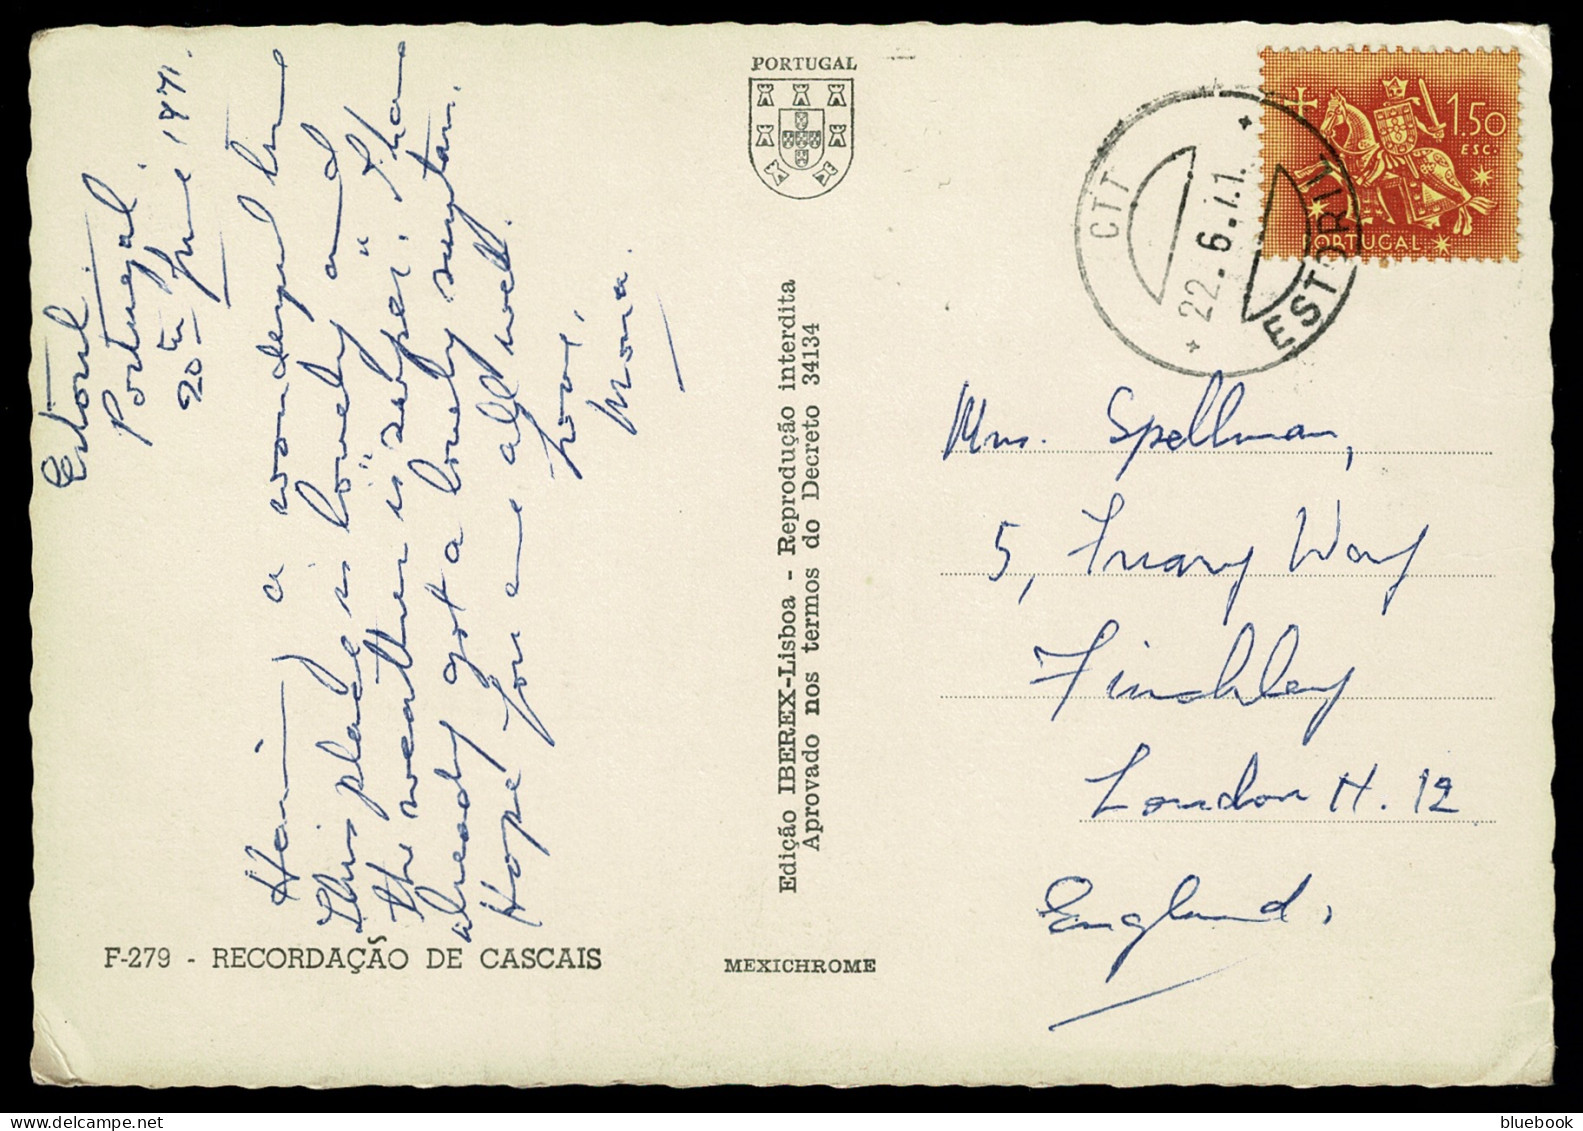 Estoril
Portugal
20th June 1971.
Having a wonderful time
This place is lovely and
the weather is "super". I have
already got a lovely suntan.
Hope you are all well.
Love,
Mona.
F-279 - RECORDAÇÃO DE CASCAIS
PORTUGAL
Edição IBEREX-Lisboa - Reprodução interdita
Aprovado nos termos do Decreto 34134
MEXICHROME
CTT
22.6.71.
ESTORIL
1.50
ESC.
PORTUGAL
Mrs. Spellman,
5, Way
Finchley
London N. 12
England.
bluebook